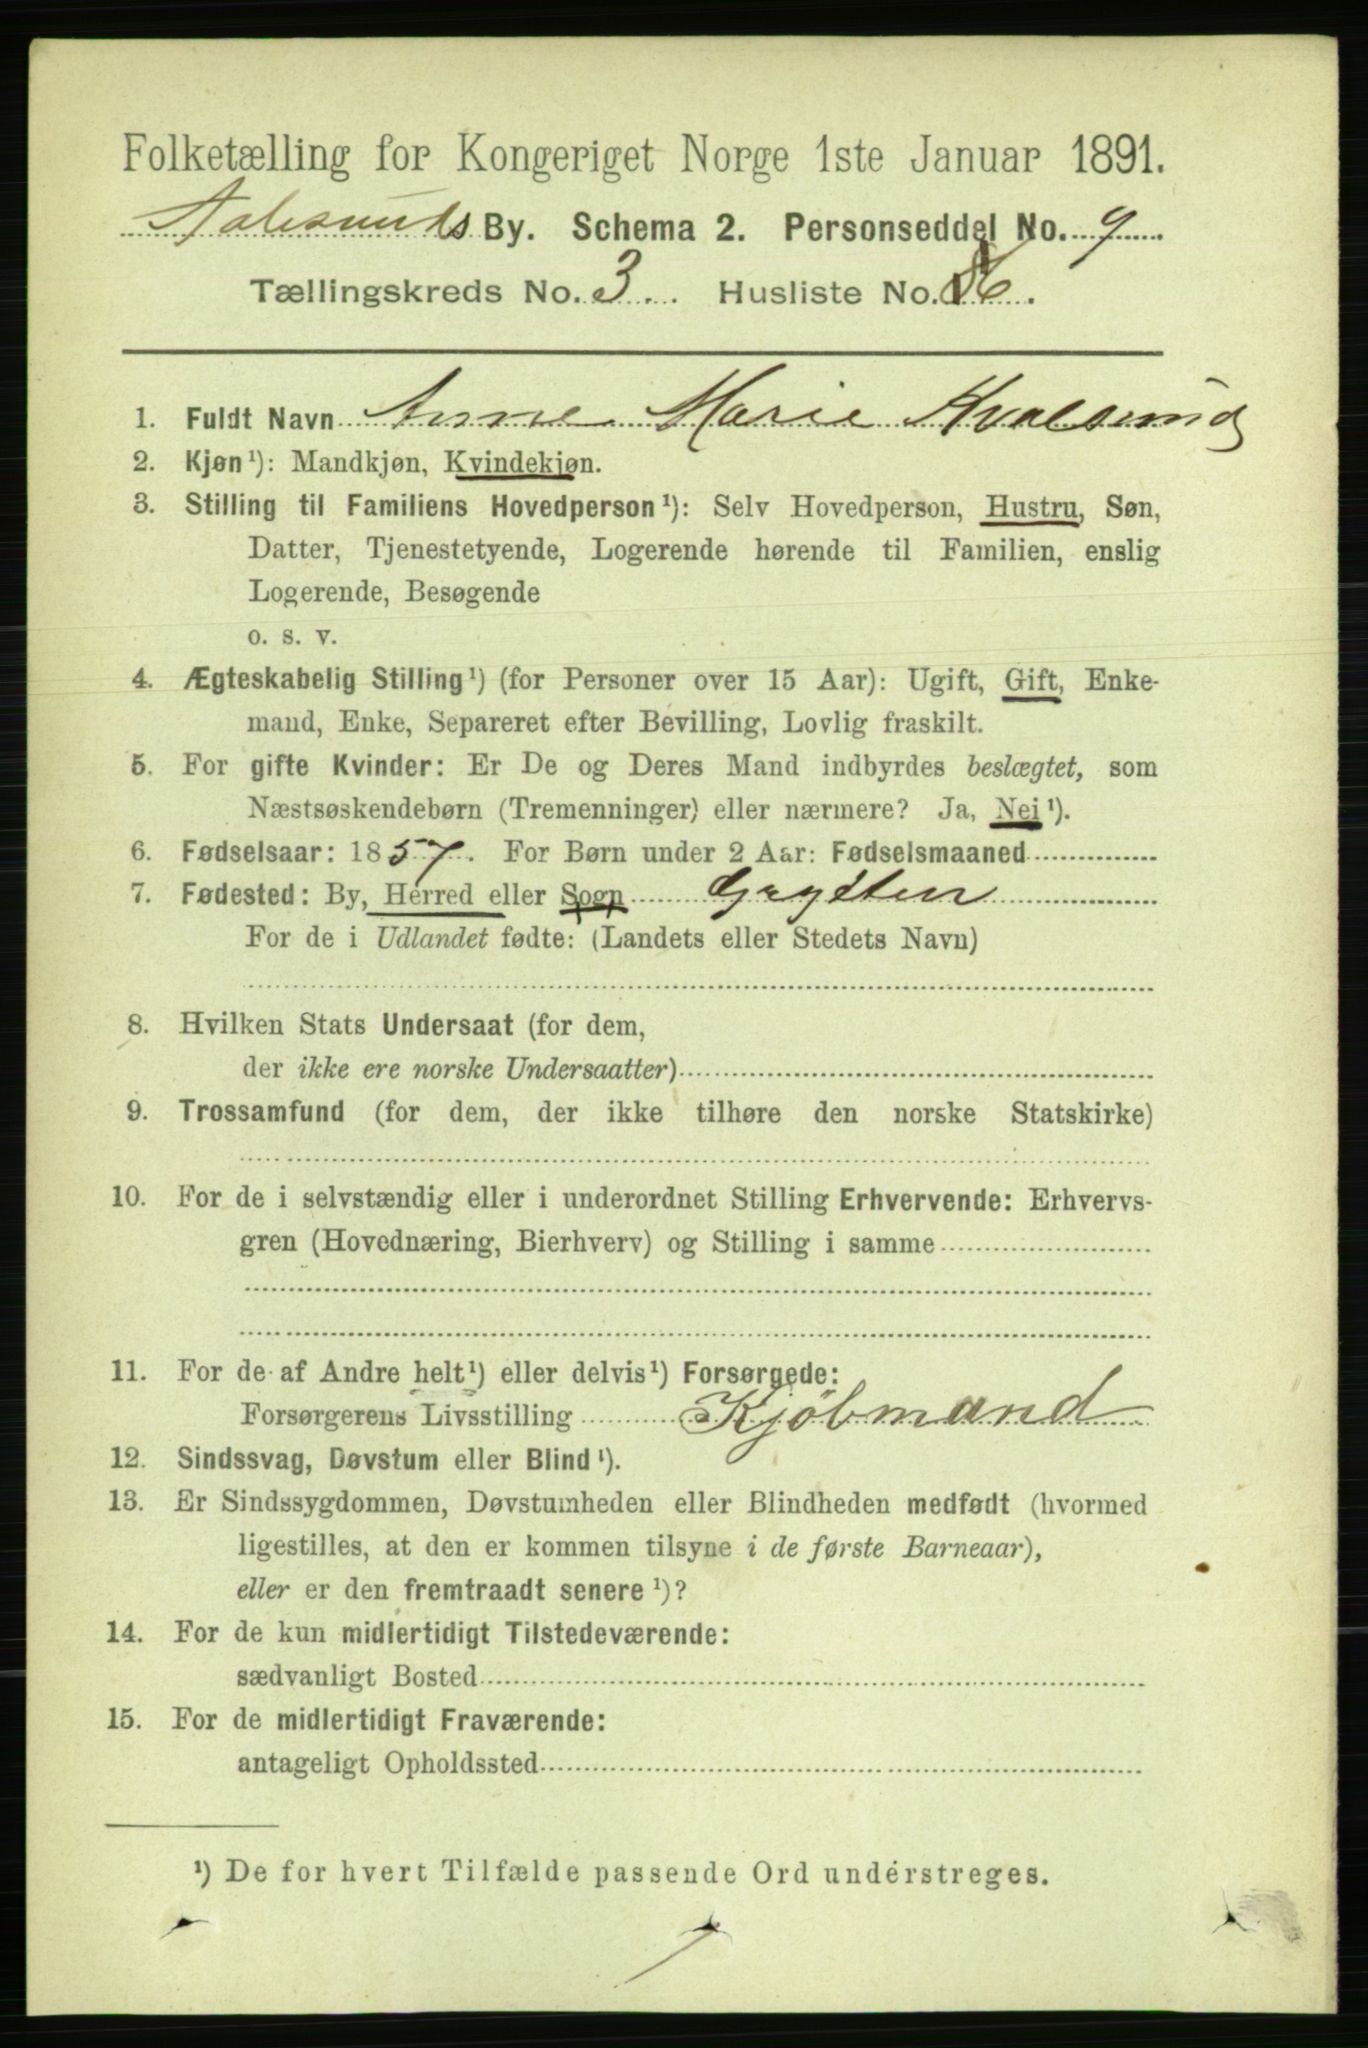 Folketælling for Kongeriget Norge 1ste Januar 1891.
Aalesunds By. Schema 2. Personseddel No. 9
Tællingskreds No. 3. Husliste No. 86.
1. Fuldt Navn Anne Marie Kvalsund
2. Kjøn¹): Mandkjøn, Kvindekjøn.
3. Stilling til Familiens Hovedperson¹): Selv Hovedperson, Hustru, Søn,
Datter, Tjenestetyende, Logerende hørende til Familien, enslig
Logerende, Besøgende
o. s. v.
4. Ægteskabelig Stilling¹) (for Personer over 15 Aar): Ugift, Gift, Enke-
mand, Enke, Separeret efter Bevilling, Lovlig fraskilt.
5. For gifte Kvinder: Er De og Deres Mand indbyrdes beslægtet, som
Næstsøskendebørn (Tremenninger) eller nærmere? Ja, Nei¹).
6. Fødselsaar: 1857. For Børn under 2 Aar: Fødselsmaaned
7. Fødested: By, Herred eller Sogn Grytten
For de i Udlandet fødte: (Landets eller Stedets Navn)
8. Hvilken Stats Undersaat (for dem,
der ikke ere norske Undersaatter)
9. Trossamfund (for dem, der ikke tilhøre den norske Statskirke)
10. For de i selvstændig eller i underordnet Stilling Erhvervende: Erhvervs-
gren (Hovednæring, Bierhverv) og Stilling i samme
11. For de af Andre helt¹) eller delvis¹) Forsørgede:
Forsørgerens Livsstilling Kjöbmand
12. Sindssvag, Døvstum eller Blind¹).
13. Er Sindssygdommen, Døvstumheden eller Blindheden medfødt (hvormed
ligestilles, at den er kommen tilsyne i de første Barneaar),
eller er den fremtraadt senere¹)?
14. For de kun midlertidigt Tilstedeværende:
sædvanligt Bosted
15. For de midlertidigt Fraværende:
antageligt Opholdssted
¹) De for hvert Tilfælde passende Ord understreges.